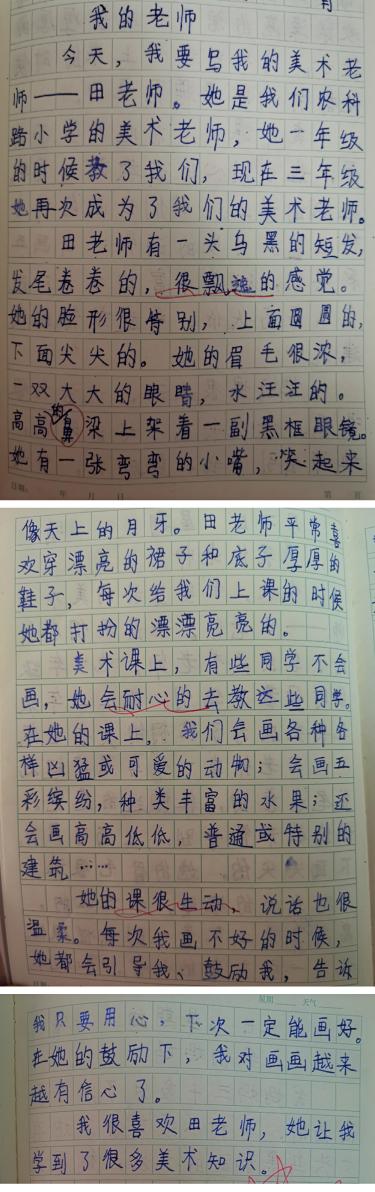 我的老师
今天，我要写我的美术老
师——田老师。她是我们农科
路小学的美术老师，她一年级
的时候教了我们，现在三年级
她再次成为了我们的美术老师。
田老师有一头乌黑的短发，
发尾卷卷的，很飘逸的感觉。
她的脸形很特别，上面圆圆的，
下面尖尖的。她的眉毛很浓，
一双大大的眼睛，水汪汪的。
高高的鼻梁上架着一副黑框眼镜。
她有一张弯弯的小嘴，笑起来
日期： 年 月 日
像天上的月牙。田老师平常喜
欢穿漂亮的裙子和底子厚厚的
鞋子，每次给我们上课的时候
她都打扮的漂漂亮亮的。
美术课上，有些同学不会
画，她会耐心的去教这些同学。
在她的课上，我们会画各种各
样凶猛或可爱的动物；会画五
彩缤纷，种类丰富的水果；还
会画高高低低，普通或特别的
建筑……
她的课很生动，说话也很
温柔。每次我画不好的时候，
她都会引导我、鼓励我，告诉
星期 天气
我只要用心，下次一定能画好。
在她的鼓励下，我对画画越来
越有信心了。
我很喜欢田老师，她让我
学到了很多美术知识。